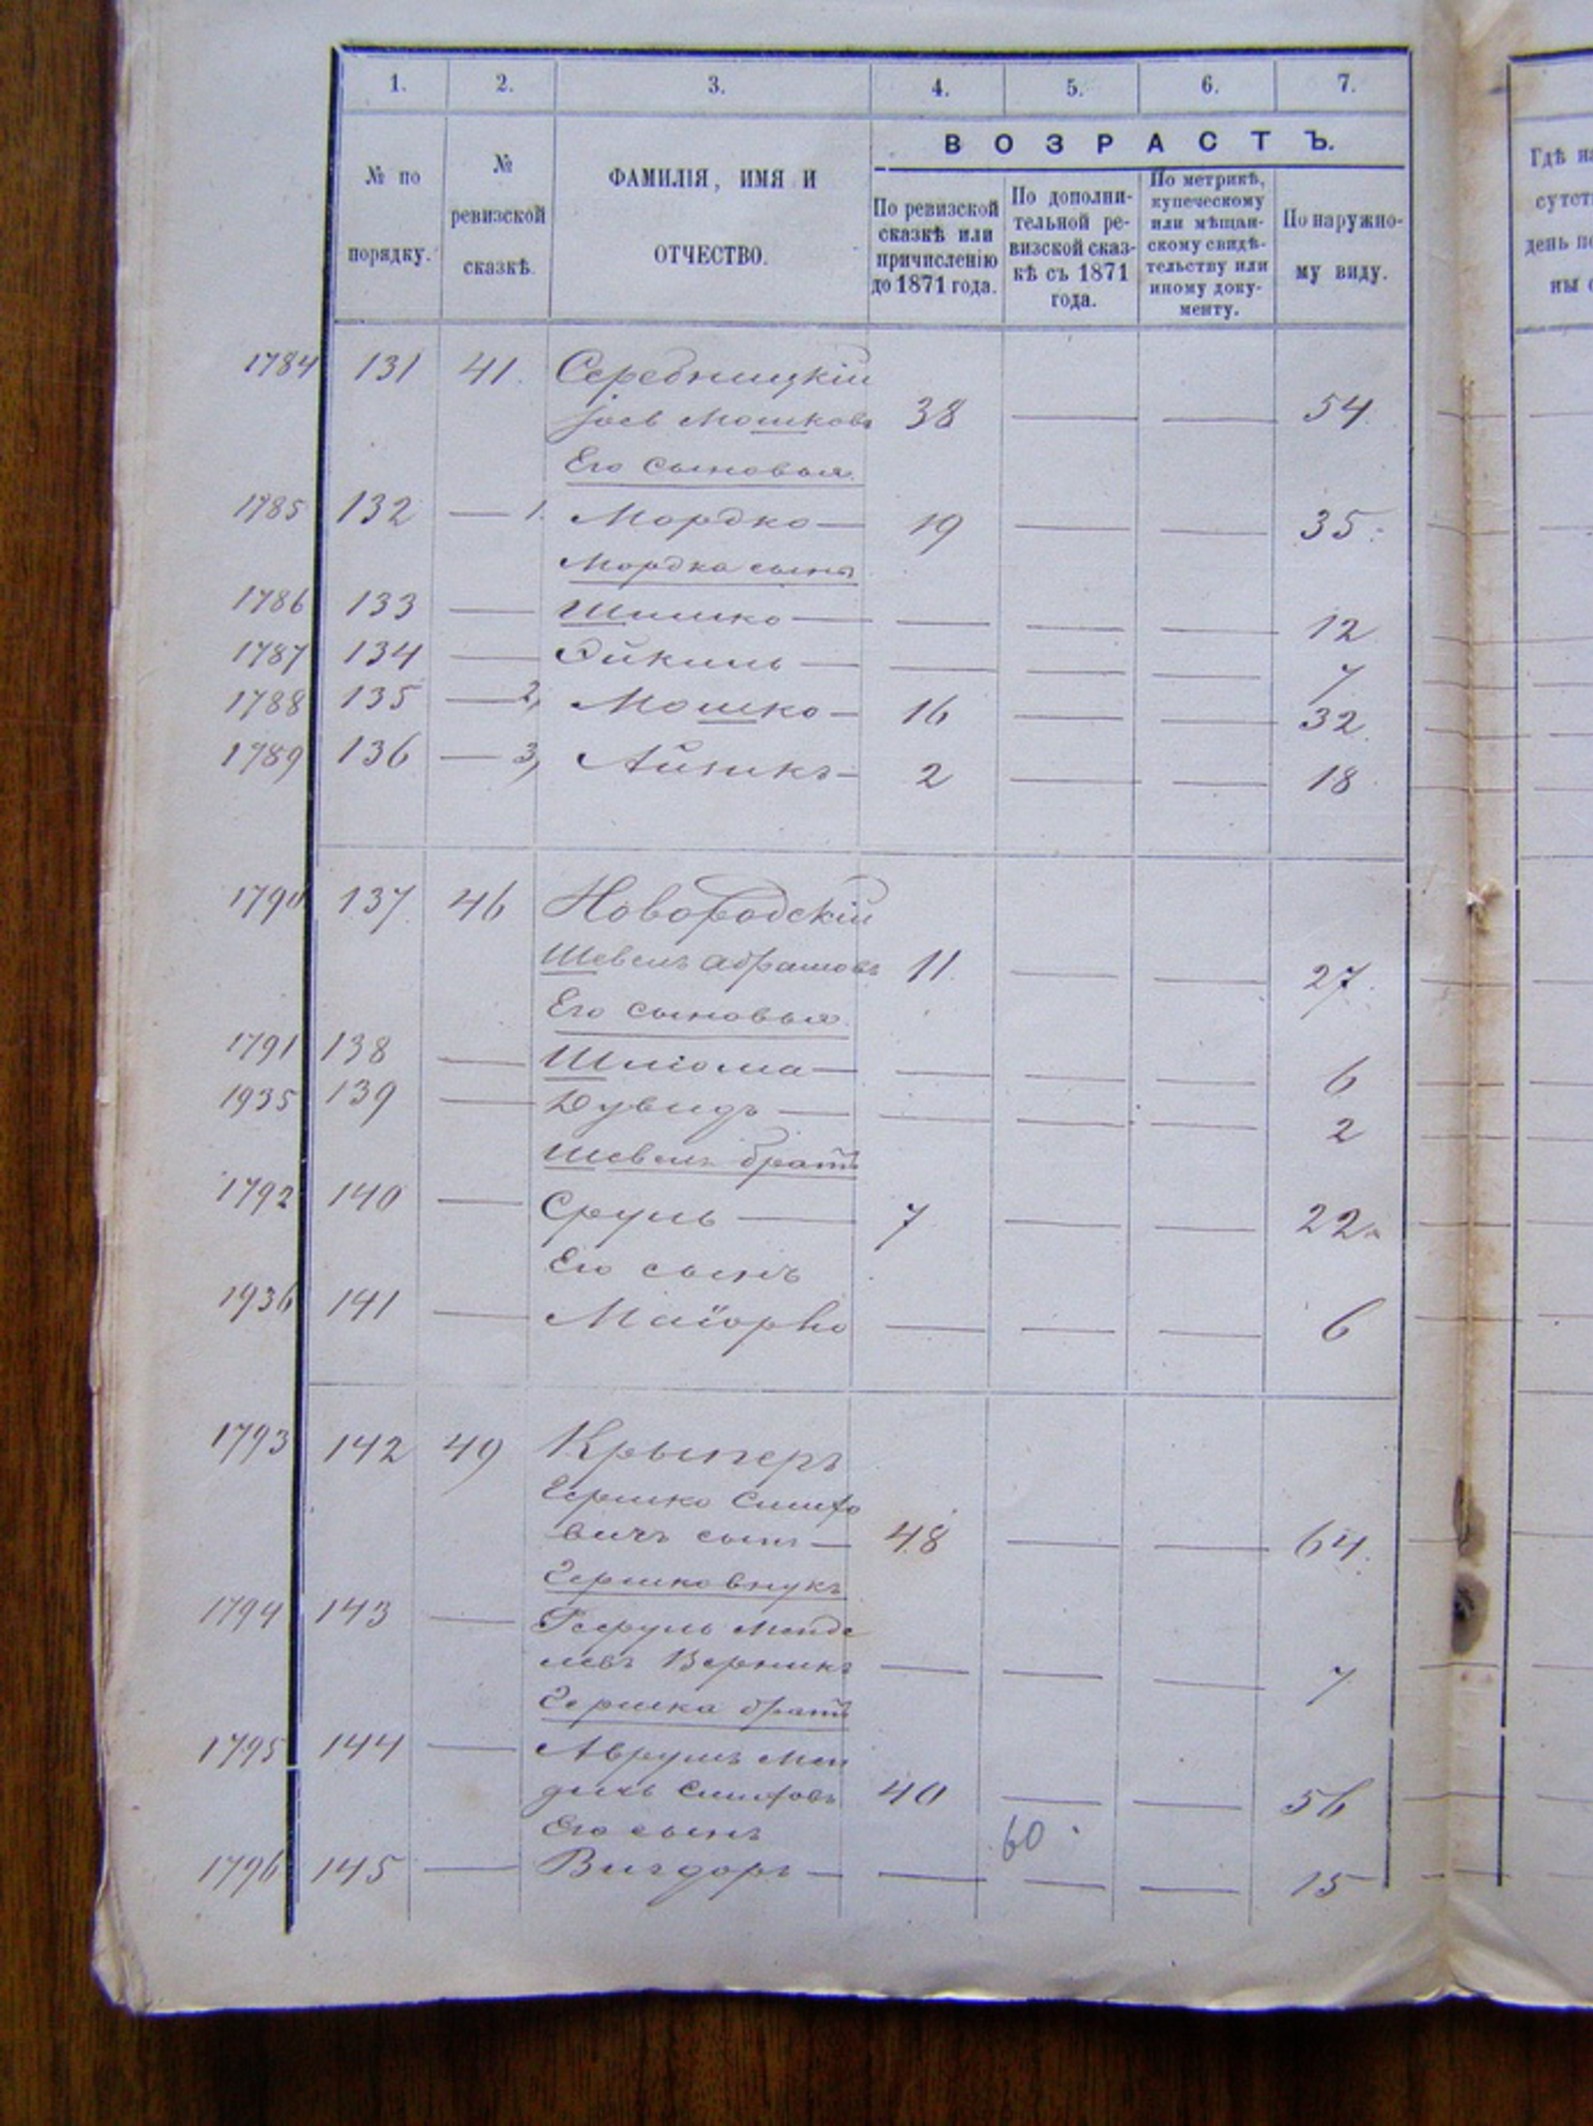 1. 2. 3. 4. 5. 6. 7.
№ по порядку.
№ ревизской сказкѣ.
ФАМИЛІЯ, ИМЯ И
ОТЧЕСТВО.
ВОЗРАСТЪ.
По ревизской
сказкѣ или
причисленію
до 1871 года.
По дополни-
тельной ре-
визской сказ-
кѣ съ 1871
года.
По метрикѣ,
купеческому
или мѣщан-
скому свидѣ-
тельству или
иному доку-
менту.
По наружно-
му виду.
Гдѣ на
сутст
день по
ны с
1784 131 41. Серебницкій
Мошковъ 38 — — 54
Его сыновья
1785 132 — 1. Мордко — 19 — — 35
Мордка сынъ
1786 133 — Шимко — — — — 12
1787 134 — — — — — 7
1788 135 — 2, Мошко — 16 — — 32
1789 136 — 3, Айзикъ — 2 — — 18
1790 137 46 Новородскій
Шевель Абрамовъ 11. — — 27
Его сыновья
1791 138 — Шліома — — — — 6
1935 139 — Дувидъ — — — — 2
Шевель братъ
1792 140 — Сруль — 7 — — 22
Его сынъ
1936 141 — Маіорко — — — 6
1793 142 49 Крыперъ
Гершко
вичъ сынъ — 48 — — 64
Гершко внукъ
1794 143 — Менде
левъ Верникъ — — — 7
Гершка братъ
1795 144 — Аврумъ Мен
40 — — 56
Его сынъ
60
1796 145 — Вигдоръ — — — — 15